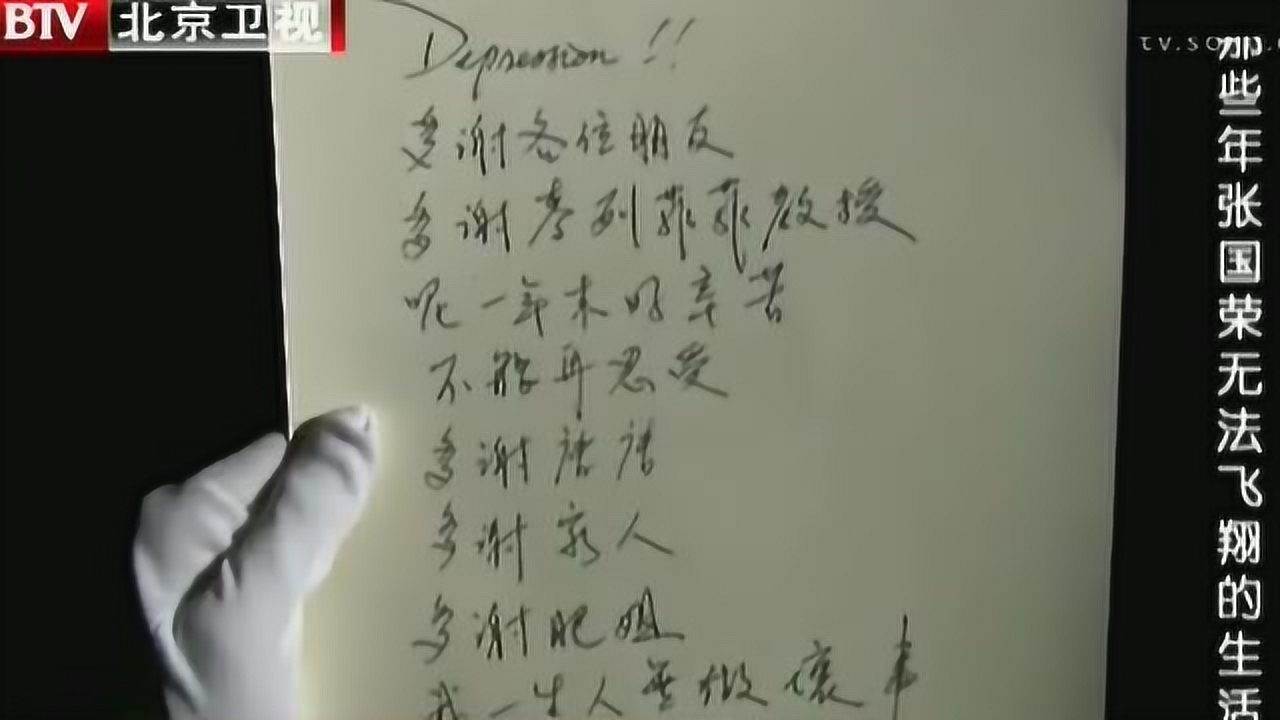 BTV 北京卫视
tv.so
Depression!!
多谢各位朋友
多谢麦列菲菲教授
呢一年来好辛苦
不能再忍受
多谢唐唐
多谢家人
多谢肥姐
我一生人無做壞事
那些年张国荣无法飞翔的生活